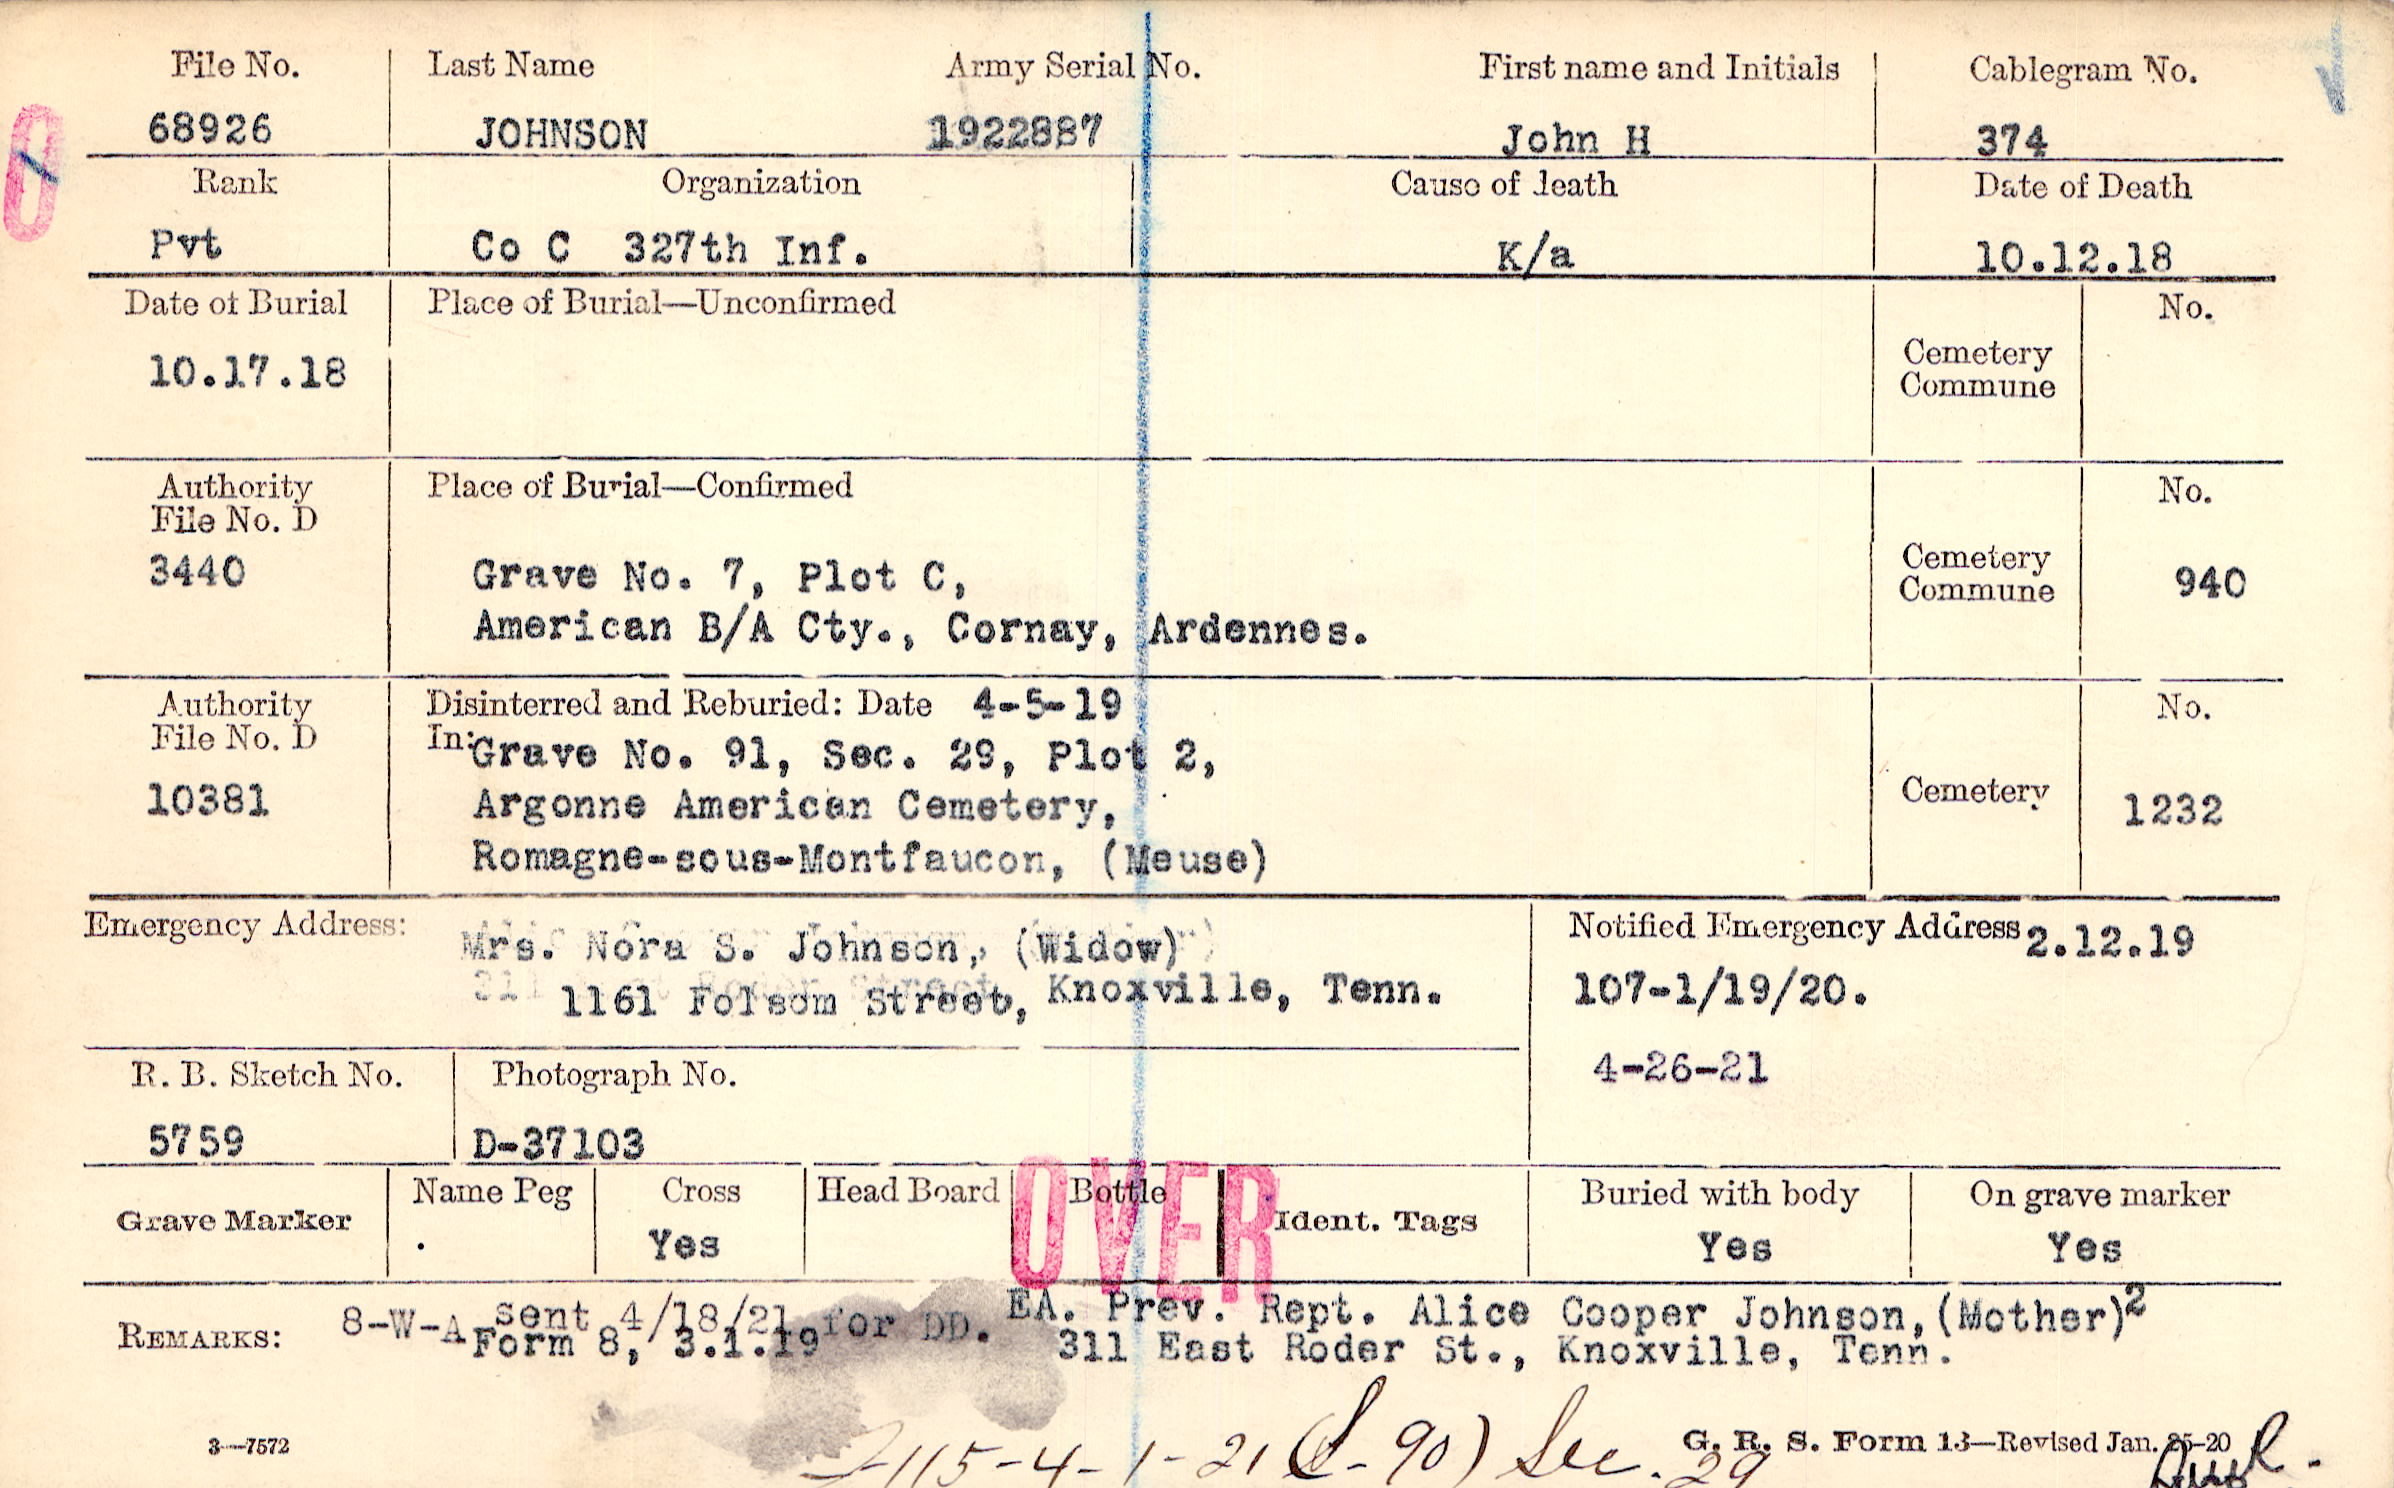 File No. Last Name Army Serial No. First name and Initials Cablegram No.
68926 JOHNSON 1922887 John H 374
Rank Organization Cause of Death Date of Death
Pvt Co C 327th Inf. K/a 10.12.18
Date of Burial Place of Burial—Unconfirmed No.
10.17.18
Cemetery
Commune
Authority Place of Burial—Confirmed No.
File No. D
3440
Grave No. 7, Plot C,
American B/A Cty., Cornay, Ardennes.
Cemetery
Commune
940
Authority Disinterred and Reburied: Date 4-5-19 No.
File No. D In:
10381
Grave No. 91, Sec. 29, Plot 2,
Argonne American Cemetery,
Romagne-sous-Montfaucon, (Meuse)
Cemetery 1232
Emergency Address: Mrs. Nora S. Johnson, (Widow)
1161 Folsom Street, Knoxville, Tenn.
Notified Emergency Address 2.12.19
107-1/19/20.
4-26-21
R. B. Sketch No. Photograph No.
5759 D-37103
Grave Marker Name Peg Cross Head Board Bottle Ident. Tags Buried with body On grave marker
Yes Yes Yes
OVER
REMARKS: 8-W-A sent 4/18/21 for DD. EA. Prev. Rept. Alice Cooper Johnson, (Mother)2
Form 8, 3.1.19 311 East Roder St., Knoxville, Tenn.
115-4-1-21 (S-90) Sec. 29
3—7572 G. R. S. Form 13—Revised Jan. 25-20